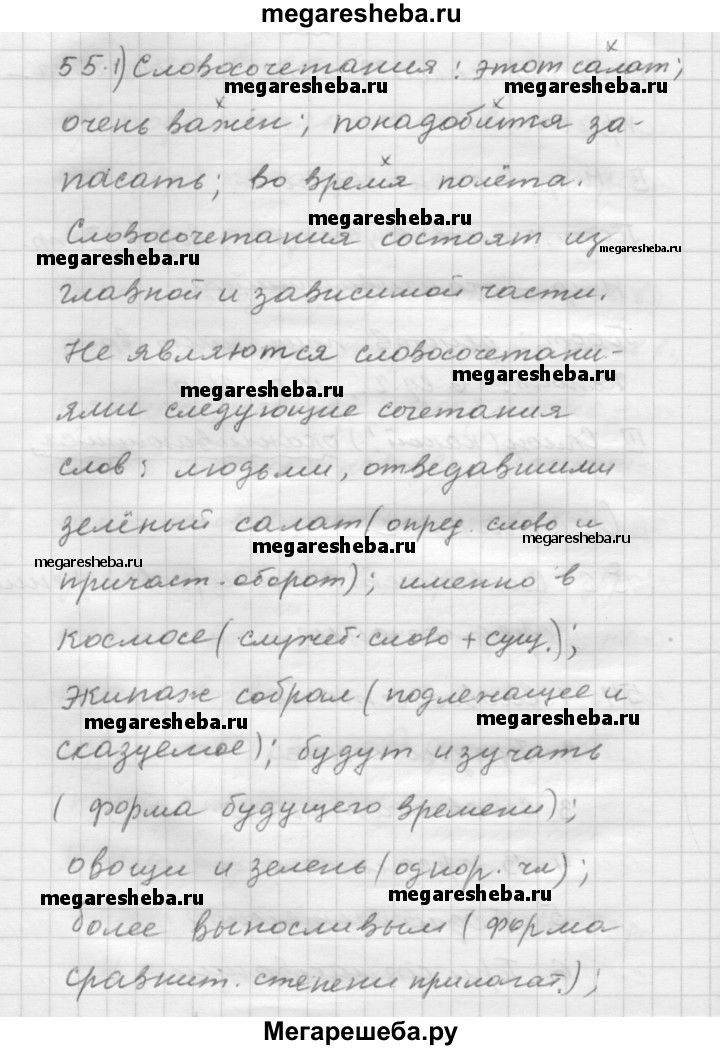 megaresheba.ru
55.1) Словосочетания: этот салат;
megaresheba.ru megaresheba.ru
очень важен; понадобится за-
пасать; во время полёта.
megaresheba.ru
Словосочетания состоят из
megaresheba.ru megaresheba.ru
главной и зависимой части.
Не являются словосочетани-
megaresheba.ru megaresheba.ru
ями следующие сочетания
слов: людьми, отведавшими
зелёный салат (опред. слово и
megaresheba.ru megaresheba.ru megaresheba.ru
причаст. оборот); именно в
космосе (служеб. слово + сущ.);
экипаж собрал (подлежащее и
megaresheba.ru megaresheba.ru
сказуемое); будут изучать
(форма будущего времени);
овощи и зелень (однор. чл);
megaresheba.ru megaresheba.ru
более выносливым (форма
сравнит. степени прилагат.);
Мегарешеба.ру